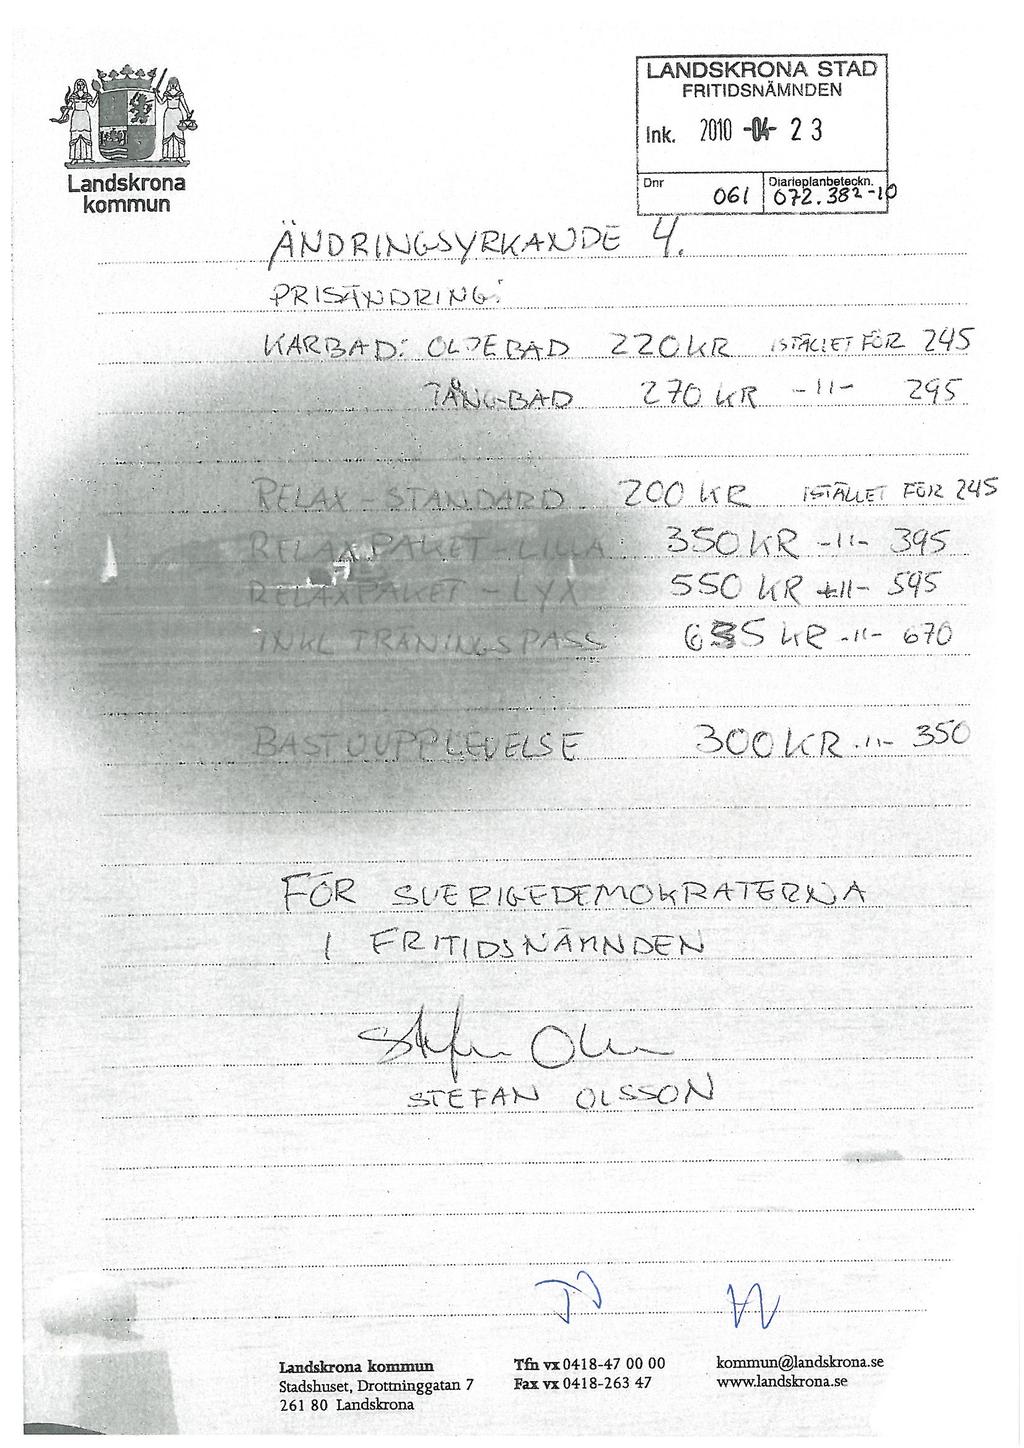 Landskrona
kommun
LANDSKRONA STAD
FRITIDSNÄMNDEN
Ink. 2010 -04- 23
Dnr 061
Diarieplanbeteckn. 072.382-10
ÄNDRINGSYRKANDE 4.
PRISÄNDRING:
KARBAD: OLJEBAD 220KR ISTÄLLET FÖR 245
TÅNG-BAD 270 KR -11- 295
RELAX - STANDARD 200 KR ISTÄLLET FÖR 245
RELAXPAKET - LILLA: 350KR -11- 395
RELAXPAKET - LYX 550 KR -11- 595
INKL TRÄNINGSPASS KR -11- 670
BASTUUPPLEVELSE 300KR -11- 350
FÖR SVERIGEDEMOKRATERNA
I FRITIDSNÄMNDEN
Stefan Olsson
STEFAN OLSSON
Landskrona kommun
Stadshuset, Drottninggatan 7
261 80 Landskrona
Tfn vx 0418-47 00 00
Fax vx 0418-263 47
kommun@landskrona.se
www.landskrona.se